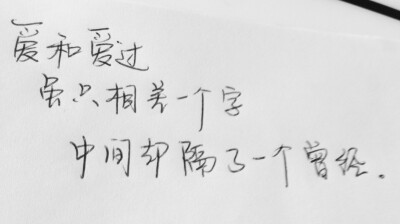 爱和爱过
虽只相差一个字
中间却隔了一个曾经.